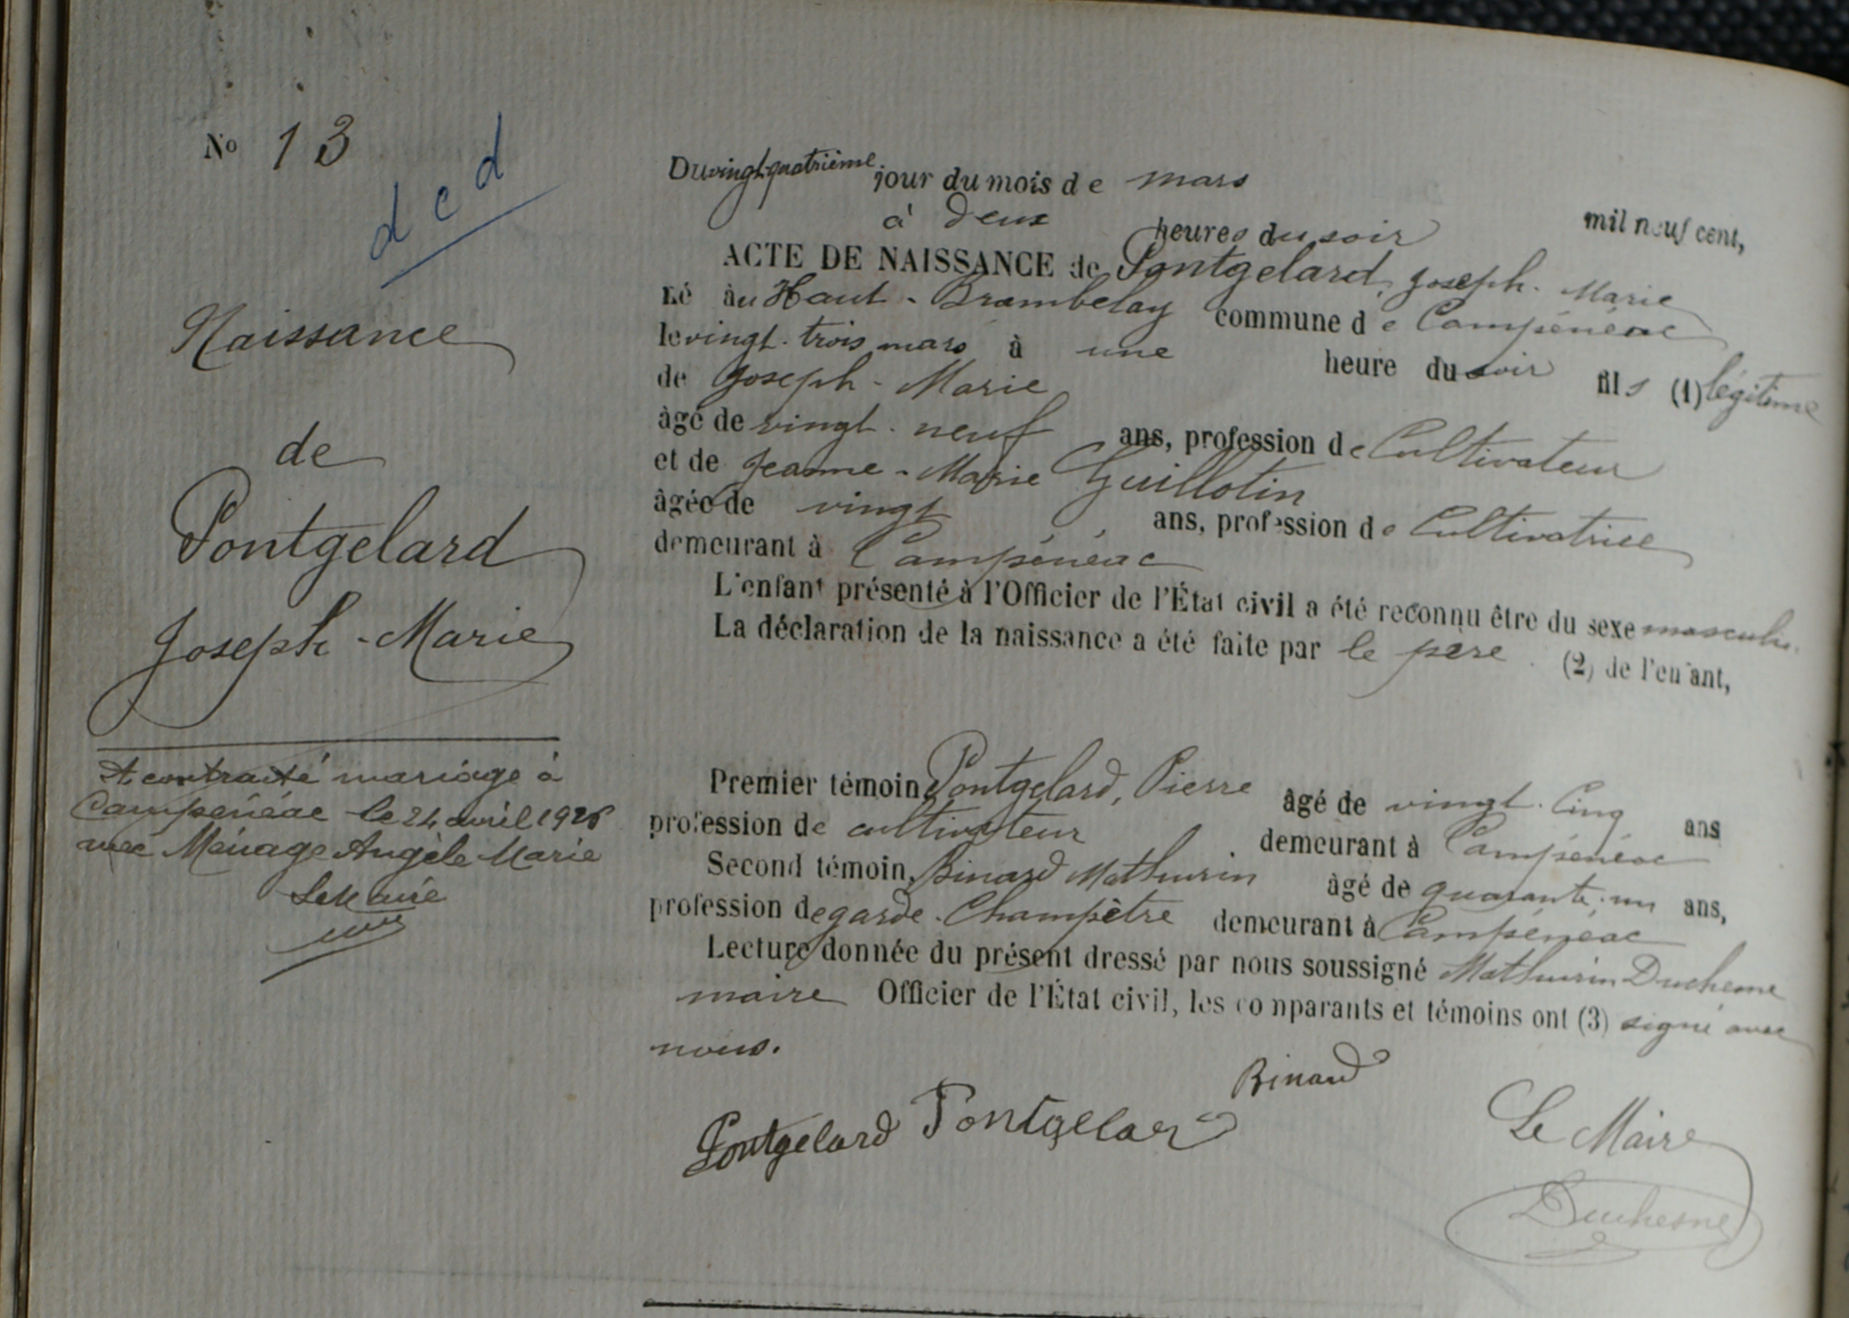 No 13
dcd
Naissance
de
Pontgelard
Joseph-Marie
A contracté mariage à
Campénéac le 24 avril 1926
avec Ménage Angèle Marie
Le Maire
Du vingt-quatrième jour du mois de mars mil neuf cent,
à deux heures du soir
ACTE DE NAISSANCE de Pontgelard, Joseph-Marie
né au Haut-Brambelay commune de Campénéac
le vingt-trois mars à une heure du soir fils (1) légitime
de Joseph-Marie
âgé de vingt-neuf ans, profession de Cultivateur
et de Jeanne-Marie Guillotin
âgée de vingt ans, profession de Cultivatrice
demeurant à Campénéac
L'enfant présenté à l'Officier de l'État civil a été reconnu être du sexe masculin.
La déclaration de la naissance a été faite par le père (2) de l'enfant,
Premier témoin, Pontgelard, Pierre âgé de vingt-cinq ans
profession de cultivateur demeurant à Campénéac
Second témoin, Binard Mathurin âgé de quarante-un ans,
profession de garde-Champêtre demeurant à Campénéac
Lecture donnée du présent dressé par nous soussigné Mathurin Duchesne
maire Officier de l'État civil, les comparants et témoins ont (3) signé avec
nous.
Binard
Pontgelard Pontgelard
Le Maire
Duchesne